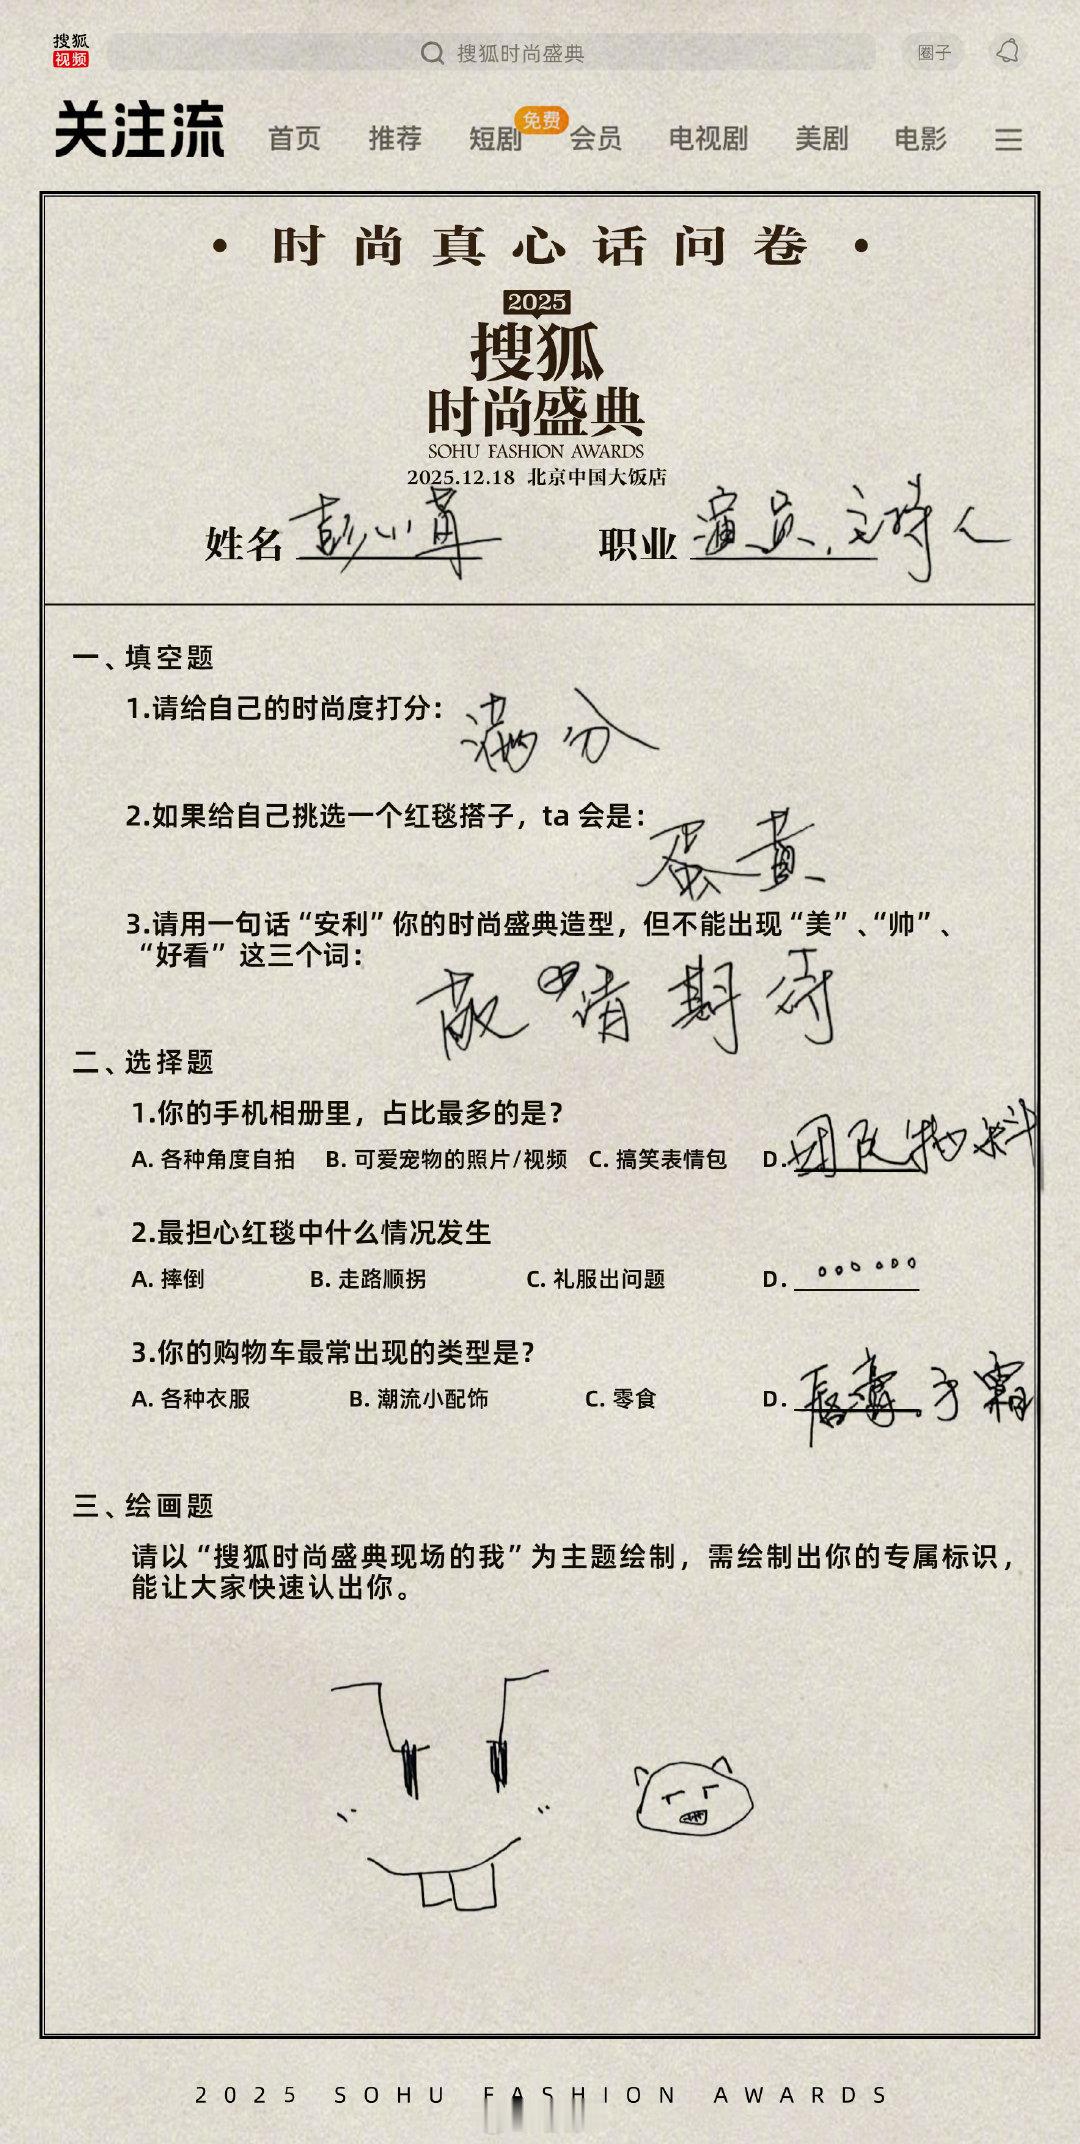 搜狐
视频
搜狐时尚盛典
圈子
关注流 首页 推荐 短剧 免费 会员 电视剧 美剧 电影
· 时尚真心话问卷 ·
2025
搜狐
时尚盛典
SOHU FASHION AWARDS
2025.12.18 北京中国大饭店
姓名 彭小苒 职业 演员、主持人
一、填空题
1.请给自己的时尚度打分：满分
2.如果给自己挑选一个红毯搭子，ta 会是：蛋黄
3.请用一句话“安利”你的时尚盛典造型，但不能出现“美”、“帅”、
“好看” 这三个词：
敬请期待
二、选择题
1.你的手机相册里，占比最多的是？
A. 各种角度自拍 B. 可爱宠物的照片/视频 C. 搞笑表情包 D. 团队物料
2.最担心红毯中什么情况发生
A. 摔倒 B. 走路顺拐 C. 礼服出问题 D. 。。。。。。
3.你的购物车最常出现的类型是？
A. 各种衣服 B. 潮流小配饰 C. 零食 D. 唇膏、手霜
三、绘画题
请以“搜狐时尚盛典现场的我”为主题绘制，需绘制出你的专属标识，
能让大家快速认出你。
2025 SOHU FASHION AWARDS